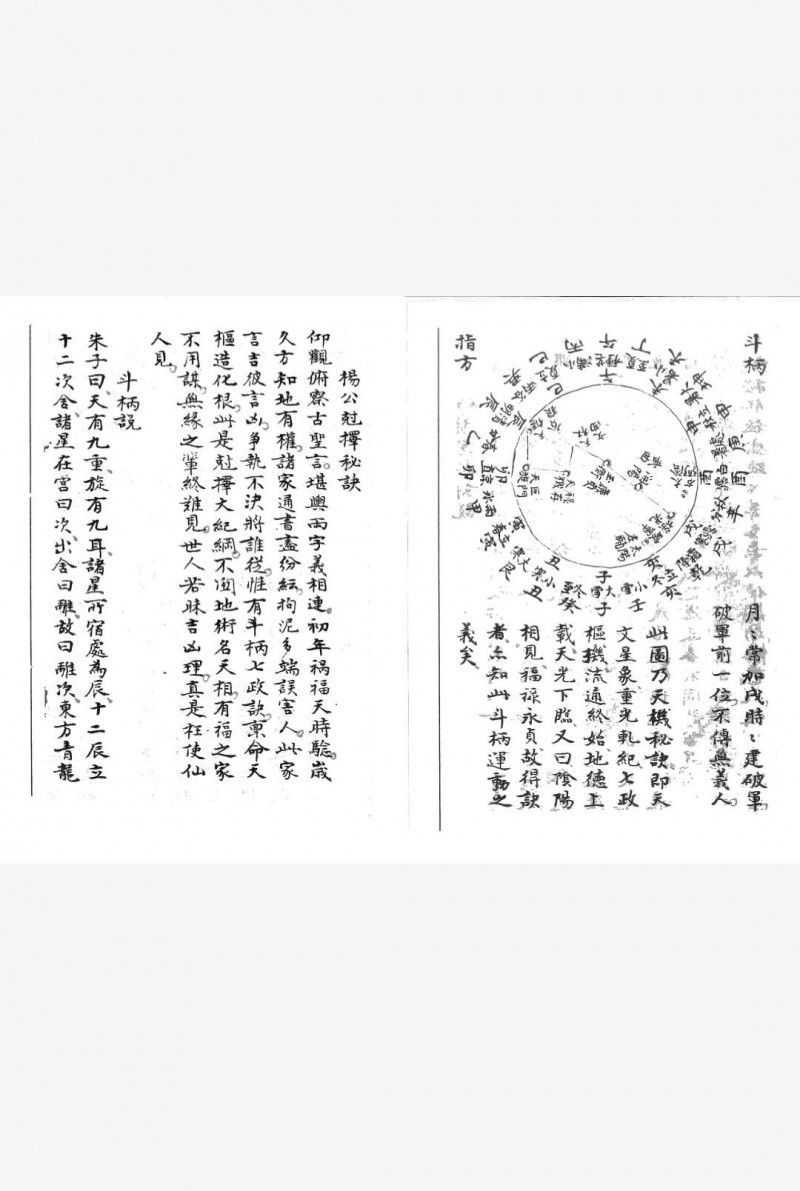 斗柄
指方
月〻常加戌時〻建破軍
破軍前一位不傳無義人
此圖乃天機秘訣即天
文星象重光軋紀七政
樞機流通終始地德上
載天光下臨又曰陰陽
相見福祿永貞故得訣
者亦知此斗柄運動之
義矣
午
丁
丙
巳
巽
辰
乙
卯
甲
艮
丑
癸
子
壬
亥
乾
戌
辛
酉
庚
申
坤
大雪
小雪
冬至
小寒
大寒
楊公尅擇秘訣
仰觀俯察古聖言堪輿兩字義相連初年禍福天時驗歲
久方知地有權諸家通書盡份紜拘泥多端誤害人此家
言吉彼言凶爭執不決將誰從惟有斗柄七政訣稟命天
樞造化根此是尅擇大紀綱不囡地術名天相有福之家
不用謀無緣之輩終難見世人若昧吉凶理真是枉使仙
人見
斗柄說
朱子曰天有九重旋有九耳諸星所宿處為辰十二辰立
十二次舍諸星在宮曰次出舍曰離故曰離次東方青龍